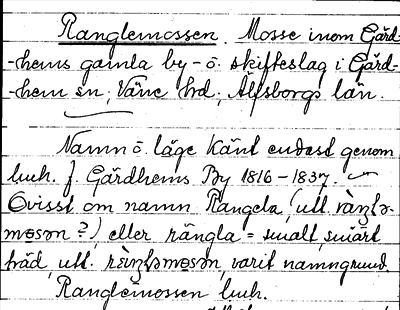 Ranglemossen. Mosse inom Gärd-
-hems gamla by- o. skifteslag i Gärd-
-hem sn; Väne hrd; Älfsborgs län.
Namn o. läge känt endast genom
luh. f. Gärdhems By 1816-1837
Ovisst om namn Rangela, (utt.
mosən?) eller rängla = smalt, smärt
träd, utt. varit namngrund.
Ranglemossen luh.